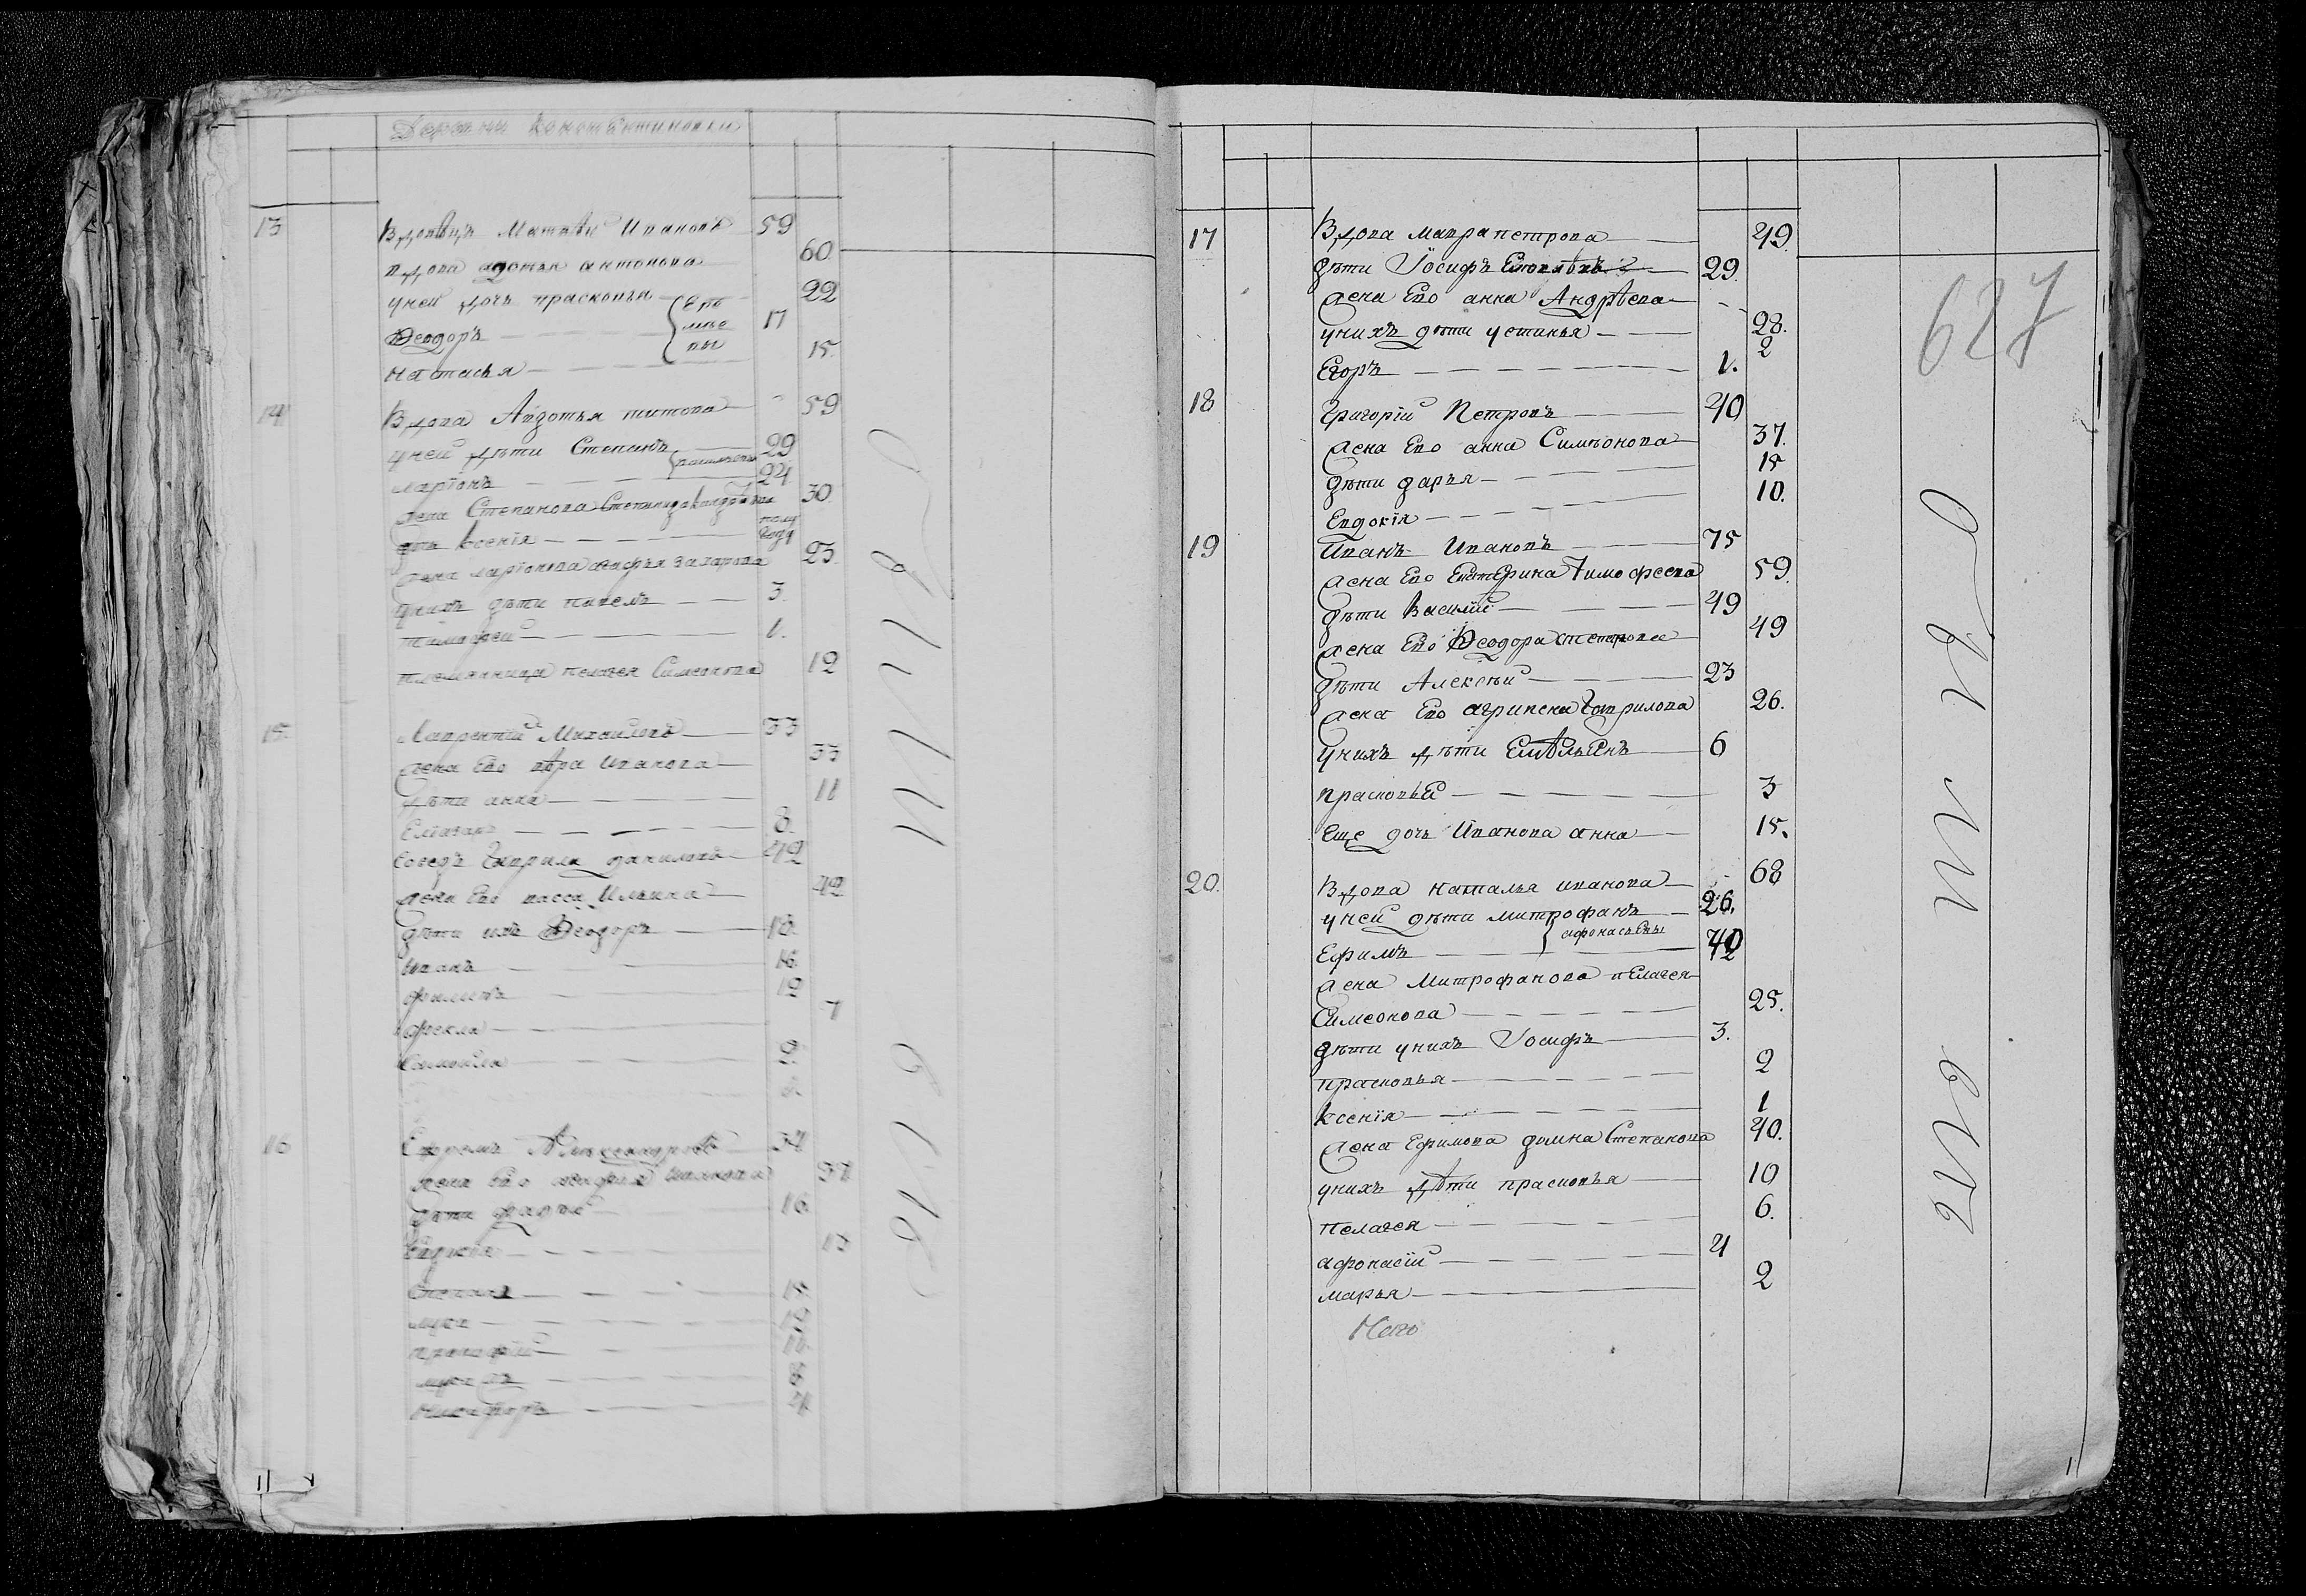 Деревни Константиновки
13 Вдовецъ Матвѣи Ивановъ 59
вдова адотья антонова 60
уней дочь прасковья 22
Ѳеодоръ 17
настасья 15
14 Вдова Авдотья титова 59
уней дѣти Степанъ 29
ларïонъ 24
жена Степанова Степанида 30
дочь ксенïя полу года
жена ларïонова агафья захарова 23
унихъ дѣти павелъ 3
тимофей 1
племянница пелагея Симеонова 12
15 Лаврентïй Михаиловъ 33
жена Ево вѣра Иванова 33
дѣти анна 11
Елïазаръ 8
соседъ Гаврила даниловъ 42
жена Ево васса Ильина 42
дѣти ихъ Ѳеодоръ 18
Иванъ 16
филипъ 12
фекла 7
2
16 Ефремъ Александровъ 34
жена Ево Иванова
дѣти 16
Евдокïя 13
Степанъ 15
лука 12
прокофïй
никифоръ 4
17 Вдова мавра петрова 49
дѣти Иосифъ 29
жена Ево анна Андрѣева 28
унихъ дѣти устинья 2
Егоръ 1
18 Григорïй Петровъ 40
жена Ево анна Симïонова 37
дѣти дарья 15
Евдокïя 10
19 Иванъ Ивановъ 75
жена Ево Екатерина Тимофеева 59
дѣти Василïй 49
жена Ево Ѳеодора 49
дѣти Алексѣй 23
жена Ево агрипена Гаврилова 26
унихъ дѣти Емѣльянъ 6
прасковья 3
еще дочь Иванова анна 15
20 Вдова наталья иванова 68
уней дѣти митрофанъ 26
афонасьевы
Ефимъ
жена Митрофанова пелагея
Симеонова 25
дѣти унихъ Иосифъ 3
прасковья 2
ксенïя 1
жена Ефимова домна Степанова 40
унихъ дѣти прасковья 10
пелагея 6
афонасïй 4
марья 2
Итого
627